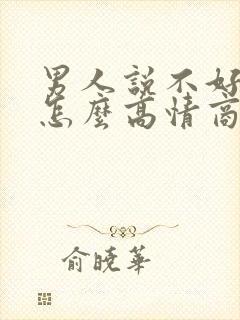 男人說不好
怎麼高情商
俞曉華